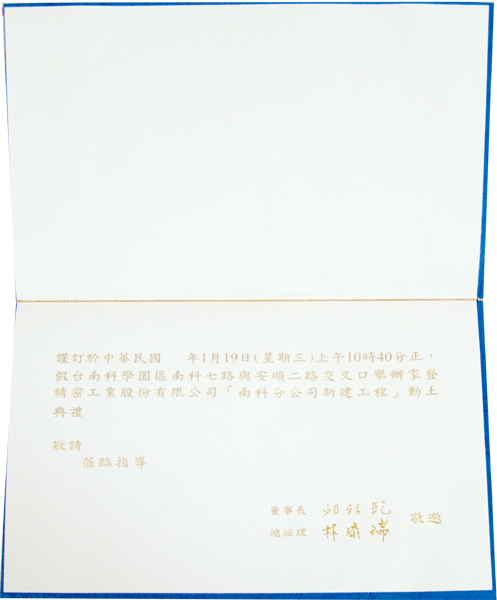 謹訂於中華民國 年1月19日(星期三)上午10時40分正，
假台南科學園區南科七路與安順二路交叉口舉辦家登
精密工業股份有限公司「南科分公司新建工程」動土
典禮
敬請
蒞臨指導
董事長 邱銘乾
總經理 林添瑞 敬邀